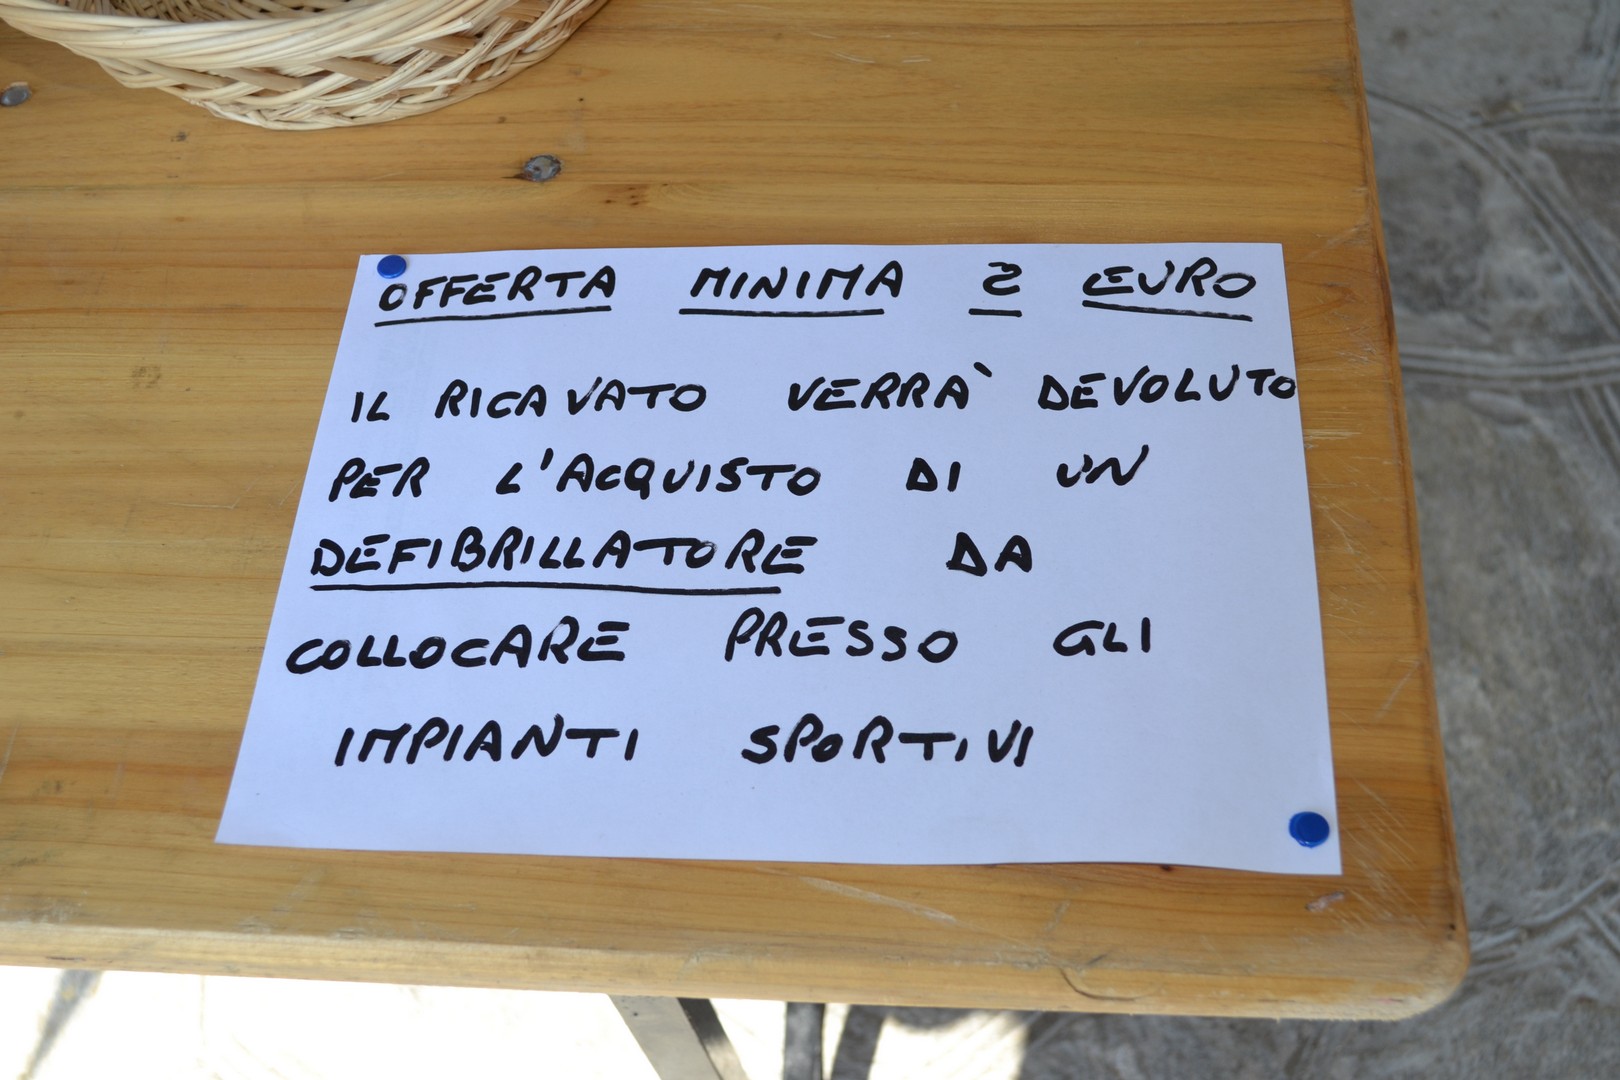 OFFERTA MINIMA 2 EURO
IL RICAVATO VERRÀ DEVOLUTO
PER L'ACQUISTO DI UN
DEFIBRILLATORE DA
COLLOCARE PRESSO GLI
IMPIANTI SPORTIVI